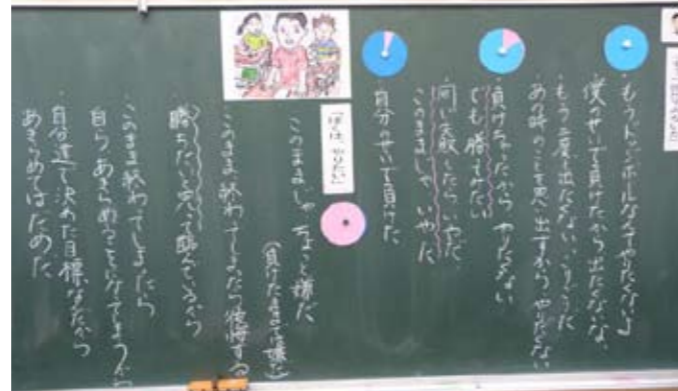 ・もうドッジボールなんてやりたくないよ
僕のせいで負けたから出たくないな、
・もう二度と出たくない、
・あの時のことを思い出すからやりたくない
負けちゃったからやりたくない
でも勝ちたい
同じ失敗したらいやだ
このままじゃいやだ
自分のせいで負けた
「ぼくは、やりたい」
このままじゃちょっと嫌だ
(負けたままでは嫌だ)
このまま終わってしまったら後悔する
勝ちたいと思って臨んでいるから
・このまま終わってしまったら
自らあきらめることになってしまうから
・自分達で決めた目標なんだから
あきらめてはだめだ